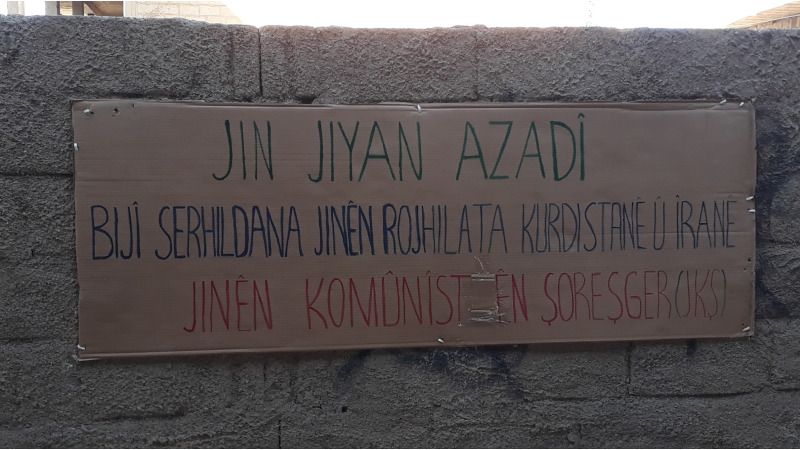 JIN JIYAN AZADÎ
BIJÎ SERHILDANA JINÊN ROJHILATA KURDISTANÊ Û ÎRANÊ
JINÊN KOMÛNÎSTÊN ŞOREŞGER(JKŞ)